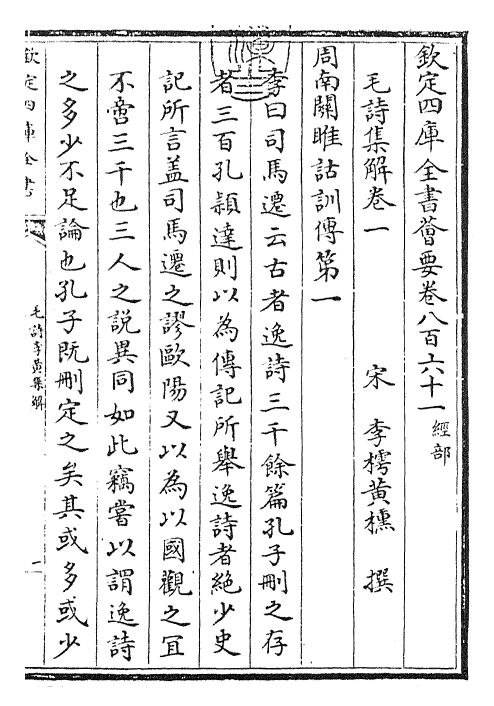 欽定四庫全書薈要卷八百六十一經部
毛詩集解卷一
宋 李樗黃櫄 撰
周南關雎詁訓傳第一
李曰司馬遷云古者逸詩三千餘篇孔子刪之存
者三百孔頴達則以為傳記所舉逸詩者絶少史
記所言蓋司馬遷之謬歐陽又以為以國觀之冝
不啻三千也三人之說異同如此竊嘗以謂逸詩
之多少不足論也孔子既刪定之矣其或多或少
欽定四庫全書
毛詩李黃集解
一